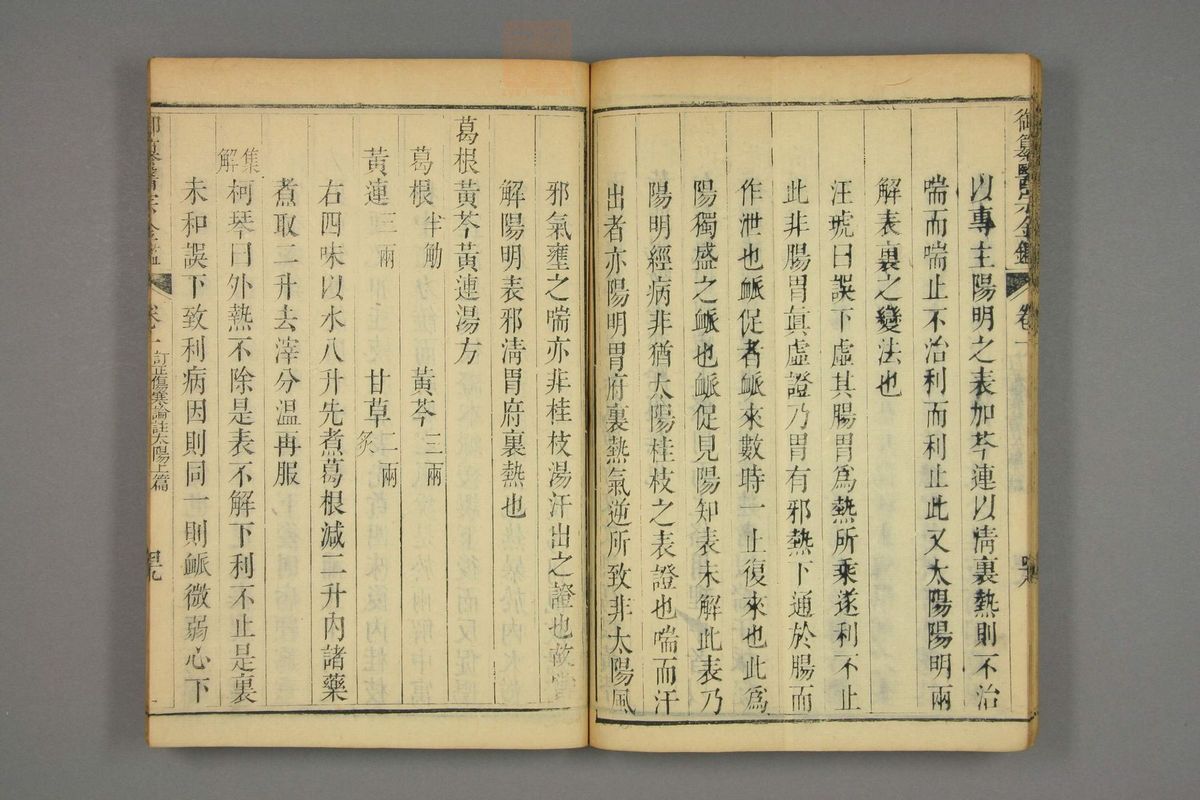 御纂醫宗金鑑 卷一 四八
以專主陽明之表加芩連以淸裏熱則不治
喘而喘止不治利而利止此又太陽陽明兩
解表裏之變法也
汪琥曰誤下虛其腸胃爲熱所乘遂利不止
此非腸胃眞虛證乃胃有邪熱下通於腸而
作泄也脈促者脈來數時一止復來也此爲
陽獨盛之脈也脈促見陽知表未解此表乃
陽明經病非猶太陽桂枝之表證也喘而汗
出者亦陽明胃府裏熱氣逆所致非太陽風
邪氣壅之喘亦非桂枝湯汗出之證也故當
解陽明表邪淸胃府裏熱也
葛根黃芩黃連湯方
葛根半觔 黃芩三兩
黃連三兩 甘草二兩炙
右四味以水八升先煮葛根減二升內諸藥
煮取二升去滓分溫再服
集解
柯琴曰外熱不除是表不解下利不止是裏
未和誤下致利病因則同一則脈微弱心下
御纂醫宗金鑑 卷一 訂正傷寒論註太陽上篇 四九